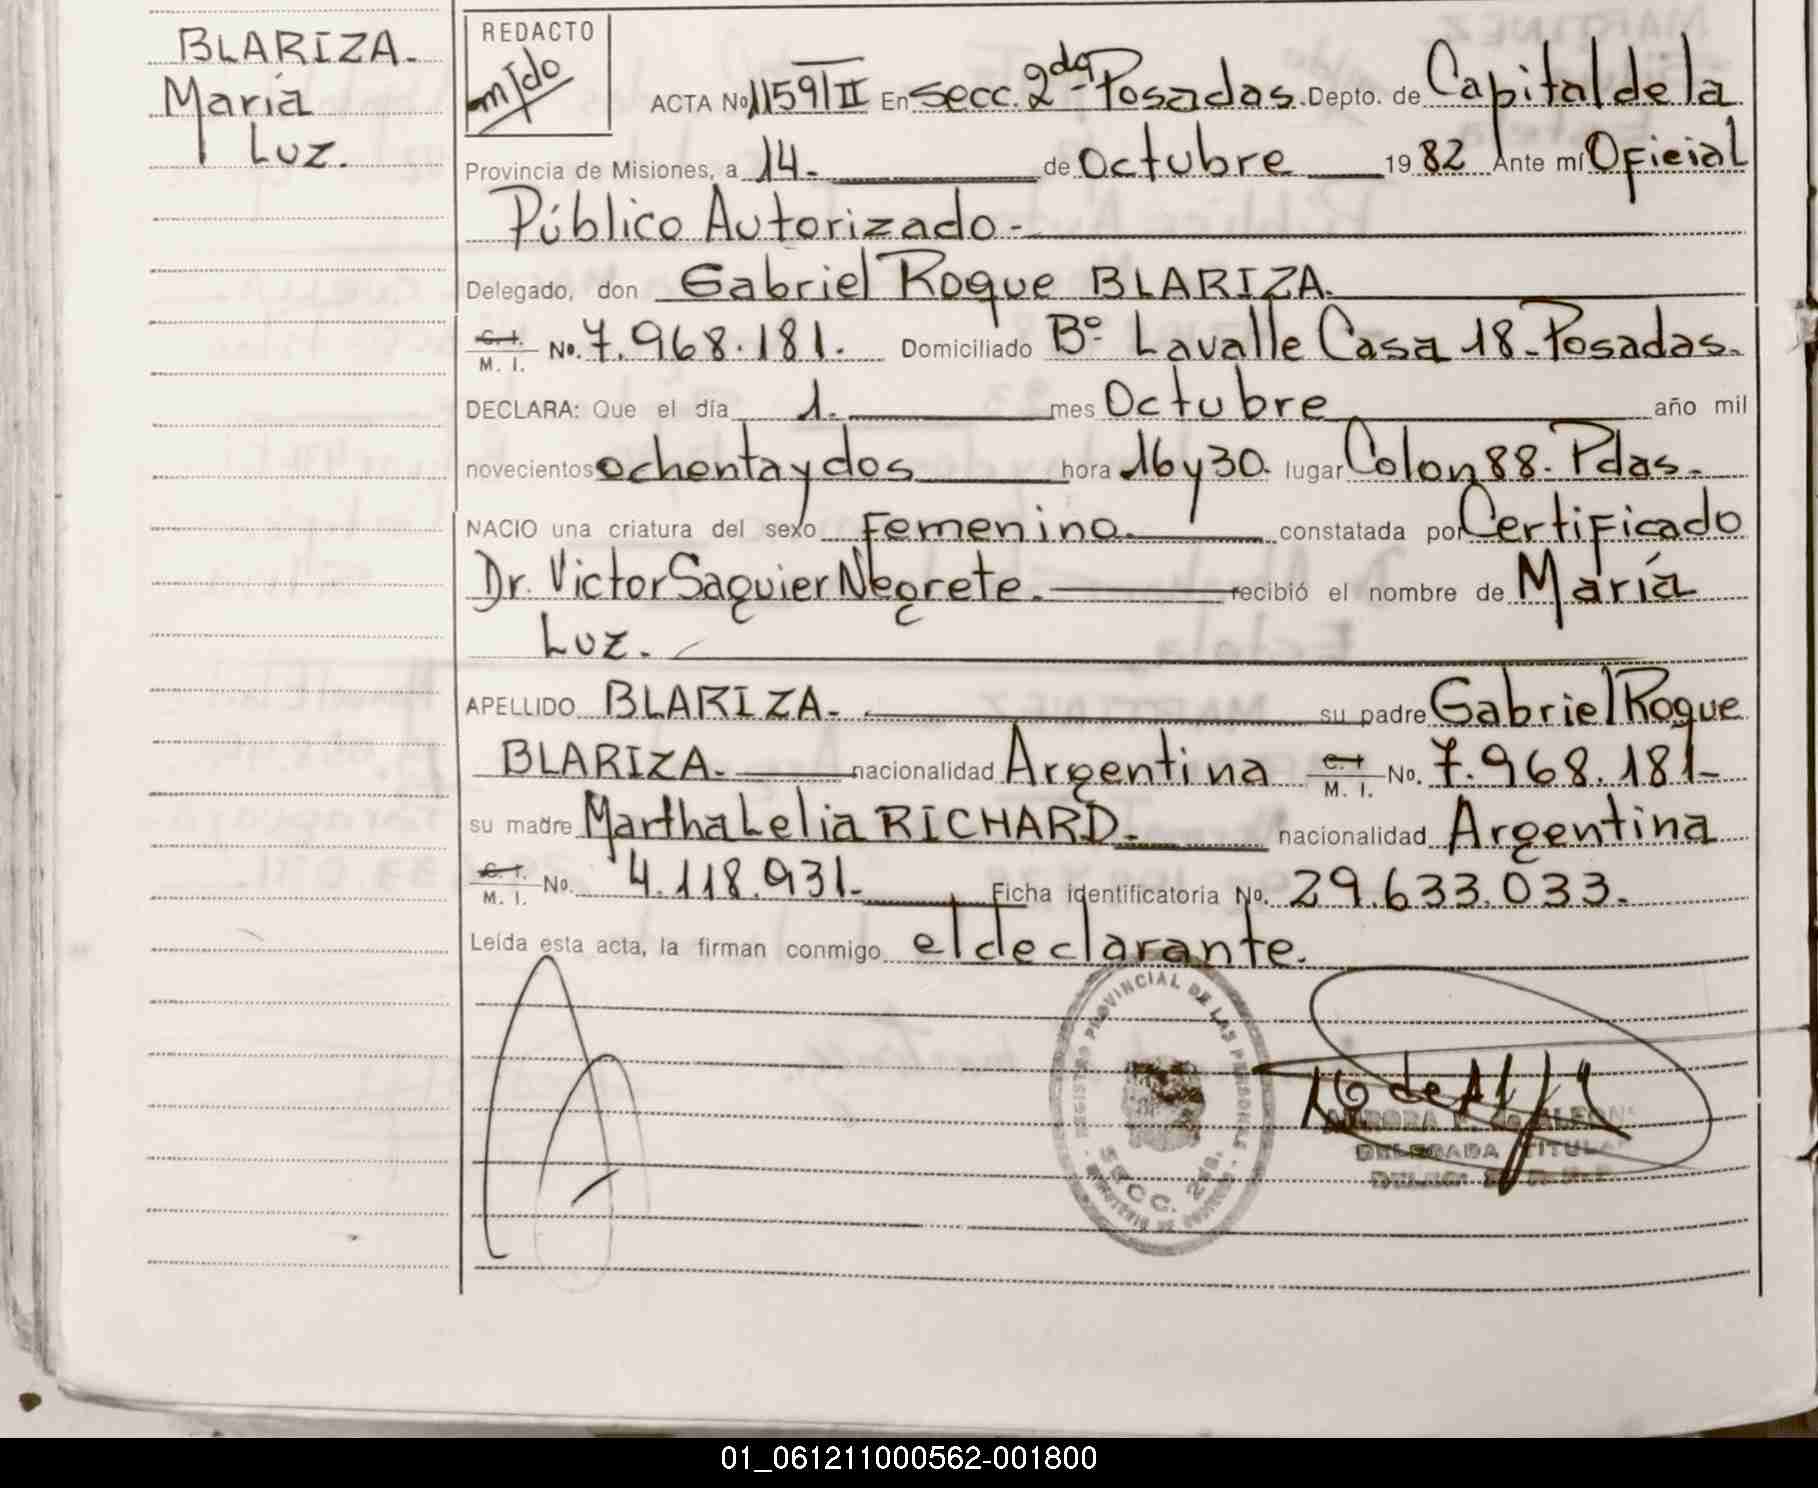 BLARIZA.
María
Luz.
REDACTO
mJdo
ACTA No 1159/II En Secc. 2da Posadas. Depto. de Capital de la
Provincia de Misiones, a 14. de Octubre 19 82 Ante mí Oficial
Público Autorizado -
Delegado, don Gabriel Roque BLARIZA.
C. I.
M. I. No. 7.968.181. Domiciliado Bº Lavalle Casa 18 - Posadas.
DECLARA: Que el día 1. mes Octubre año mil
novecientos ochenta y dos hora 16 y 30. lugar Colon 88. Pdas.
NACIO una criatura del sexo Femenino. constatada por Certificado
Dr. Victor Saguier Negrete. recibió el nombre de María
Luz.
APELLIDO BLARIZA. su padre Gabriel Roque
BLARIZA. nacionalidad Argentina C. I. M. I. No. 7.968.181-
su madre Martha Lelia RICHARD. nacionalidad Argentina
C. I.
M. I. No. 4.118.931. Ficha identificatoria No. 29.633.033.
Leída esta acta, la firman conmigo el declarante.
REGISTRO PROVINCIAL DE LAS PERSONAS
SECC. 2da.
DELEGADA TITULAR
01_061211000562-001800